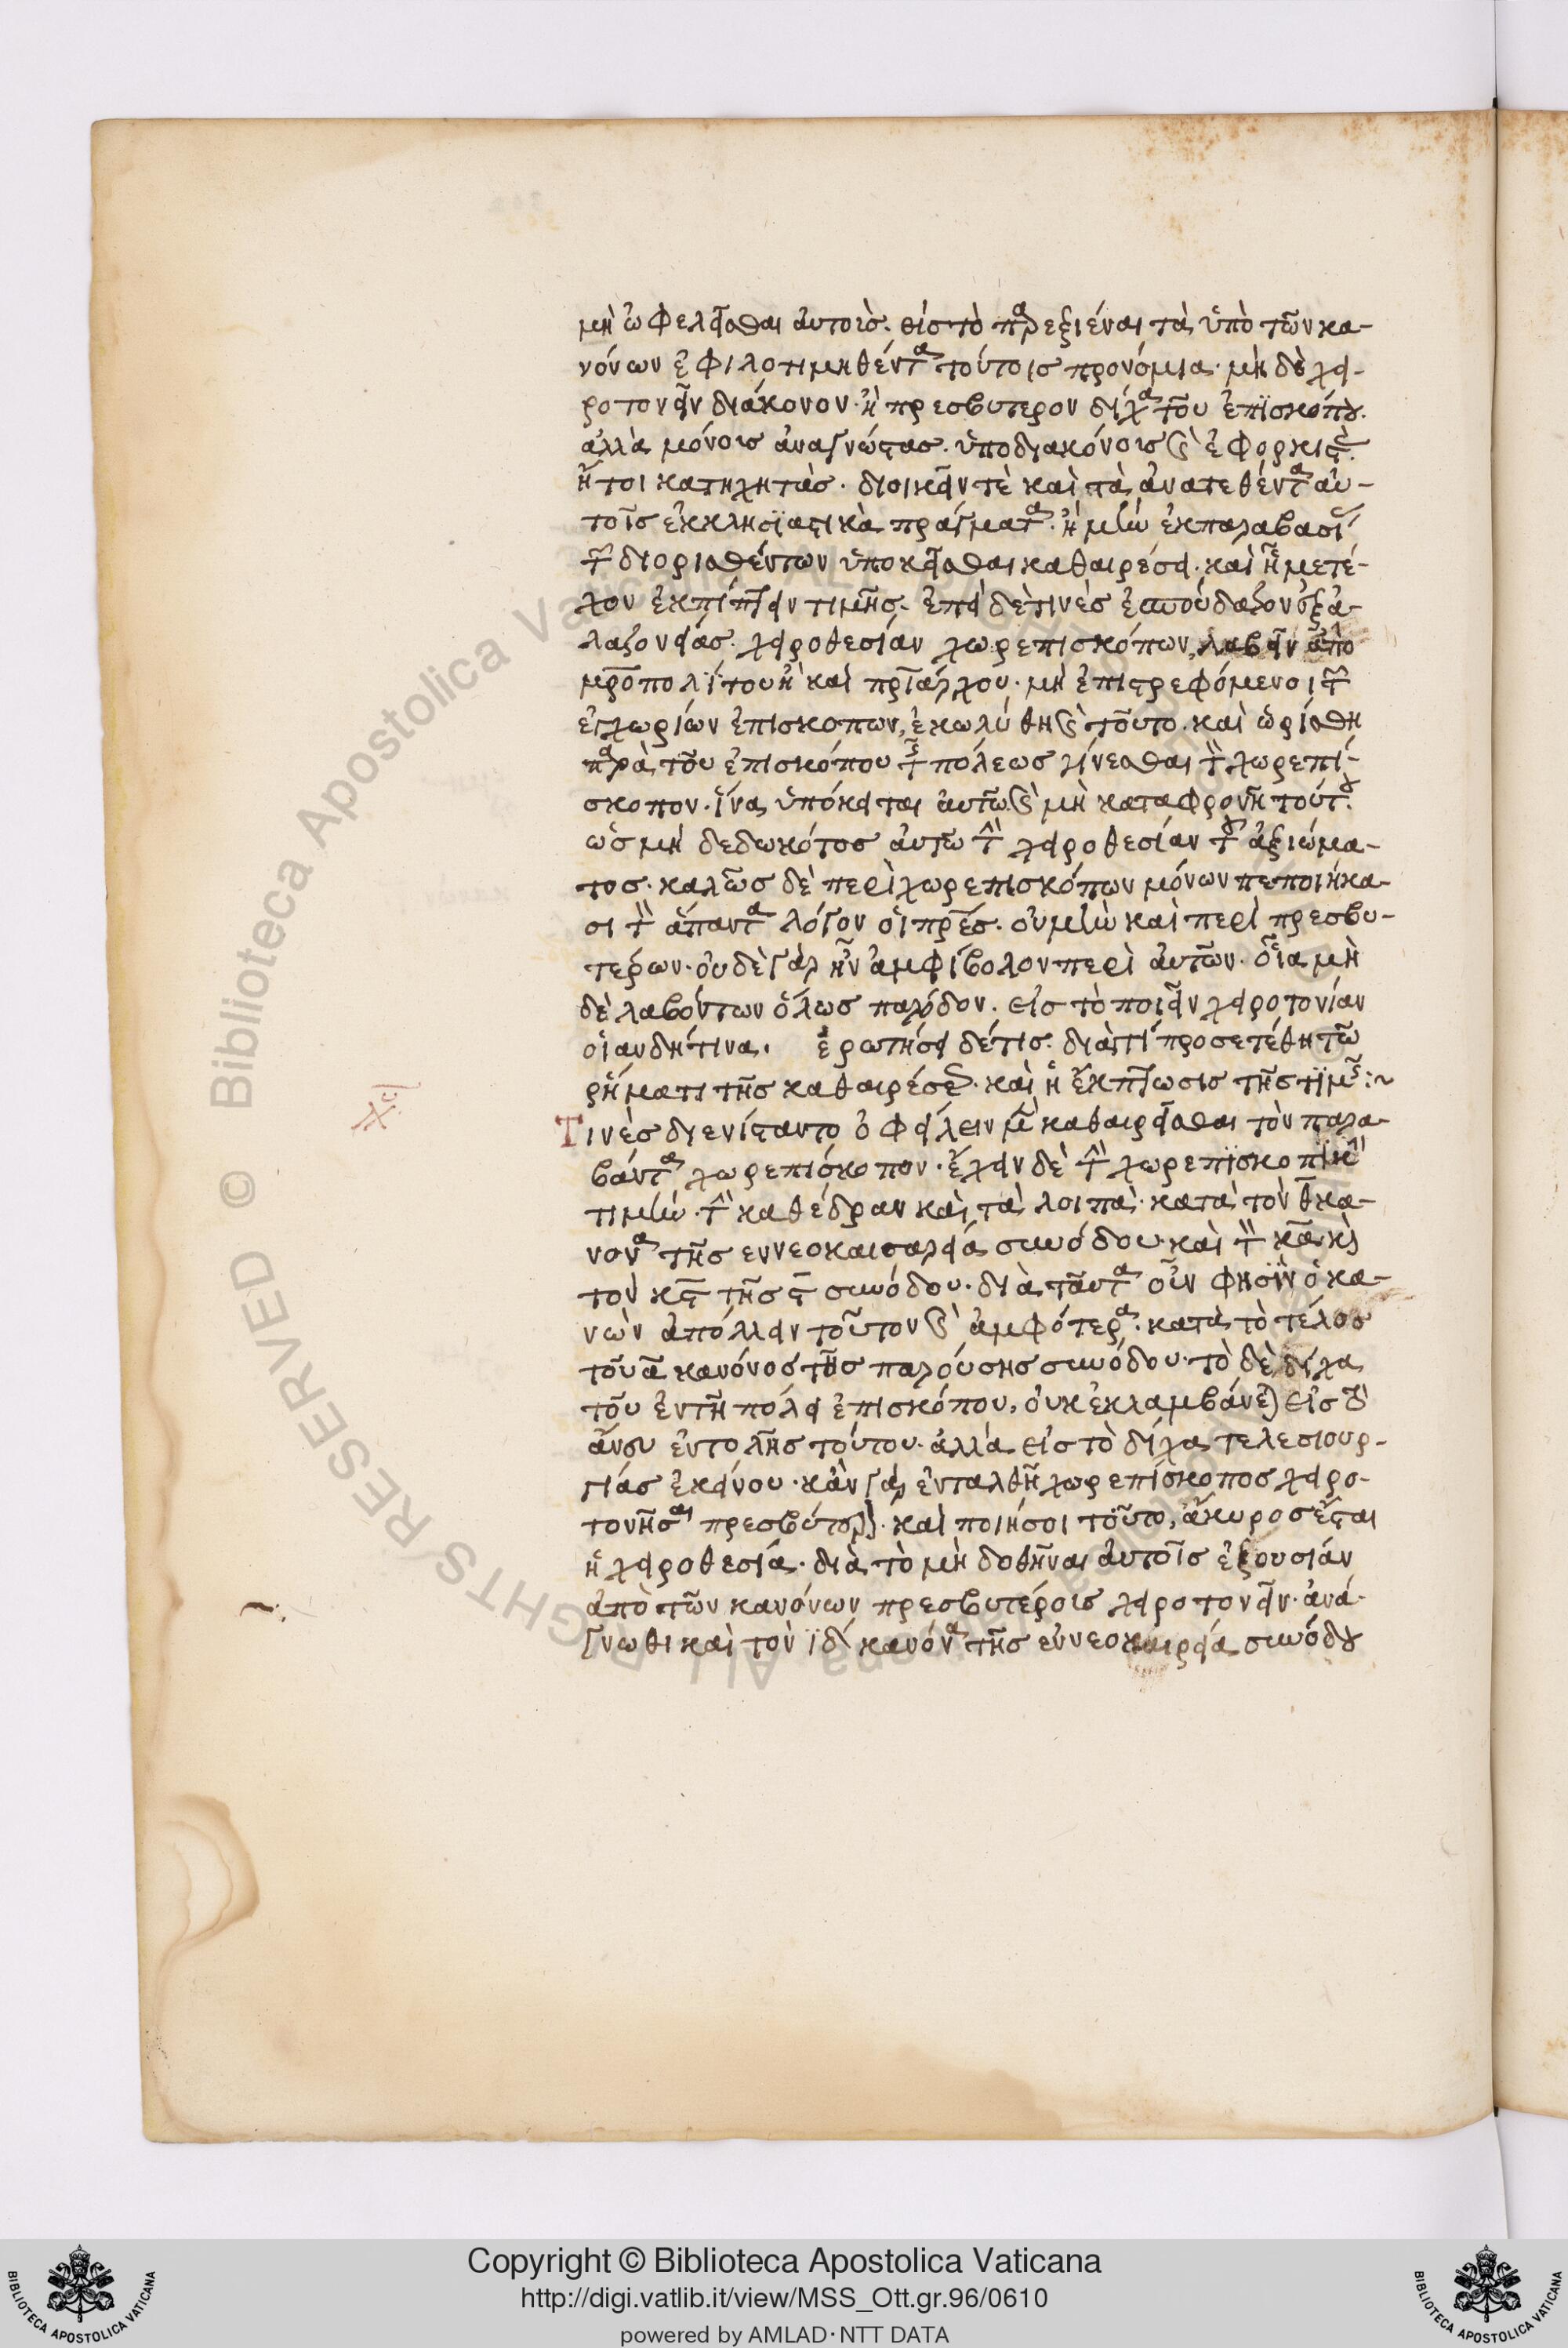 μὴ ὠφελεῖσθαι αὐτοῖς. εἰς τὸ παρεξιέναι τὰ ὑπὸ τῶν κα-
νόνων ἐφιλοτιμηθέντα τούτοις προνόμια. μὴ δὲ χει-
ροτονεῖν διάκονον. ἢ πρεσβύτερον δίχα τοῦ ἐπισκόπου.
ἀλλὰ μόνοις ἀναγνώστας. ὑποδιακόνοις καὶ ἐφορκιστὰς.
ἤτοι κατηχητὰς. διοικεῖν τὲ καὶ τὰ ἀνατεθέντα αὐ-
τοῖς ἐκκλησϊαστικὰ πράγματα. ἢ μὴν ἐκπαραβασίᾳ
τῶν διορισθέντων ὑποκεῖσθαι καθαιρέσει. καὶ ἧς μετέ-
χον ἐκπίπτειν τιμῆς. ἐπεὶ δὲ τινὲς ἐσπούδαζον ἐξ ἀ-
λαζονείας. χειροθεσίαν χωρεπισκόπων, λαβεῖν ἀπὸ
μροπολίτου ἢ καὶ πριάρχου. μὴ ἐπιστρεφόμενοι τῶν
ἐγχωρίων ἐπισκόπων, ἐκωλύθη καὶ τοῦτο. καὶ ὡρίσθη
παρὰ τοῦ ἐπισκόπου τῆς πόλεως γίνεσθαι τὸν χωρεπί-
σκοπον. ἵνα ὑπόκειται αὐτῶ καὶ μὴ καταφρονῆ τούτου.
ὡς μὴ δεδωκότος αὐτῶ τὴν χειροθεσίαν τοῦ ἀξιώμα-
τος. καλῶς δὲ περὶ χωρεπισκόπων μόνων πεποιήκα-
σι τὸν ἅπαντα λόγον οἱ πρες. οὐ μὴν καὶ περὶ πρεσβυ-
τέρων. οὐδὲ γὰρ ἦν ἀμφίβολον περὶ αὐτῶν. οἷα μὴ
δὲ λαβόντων ὅλως παρόδον. εἰς τὸ ποιεῖν χειροτονίαν
οἱανδήτινα. ἐρωτήσει δέ τις. διὰ τί προσετέθη τῶ
ρήματι τῆς καθαιρέσεως. καὶ ἡ ἔκπτωσις τῆς τϊμῆς:~
Τινὲς διενίσταντο ὀφείλειν μὲν καθαιρεῖσθαι τὸν παρα-
βάντα χωρεπίσκοπον. ἔχειν δὲ τὴν χωρεπϊσκοπϊκὴν
τιμὴν. τὴν καθέδραν καὶ τὰ λοιπὰ. κατὰ τὸν θ̅ κα-
νόνα τῆς ἐννεοκαισαρεία συνόδου. καὶ τὸν κα̅ καὶ
τὸν κϛ̅ τῆς ϛ̅ συνόδου. διὰ ταῦτα οὖν φησϊν ὁ κα-
νὼν ἀπόλλειν τοῦτον καὶ ἀμφότερα. κατὰ τὸ τέλος
τοῦ α̅ κανόνος τῆς παρούσης συνόδου. τὸ δὲ δίχα
τοῦ ἐν τῆ πόλει ἐπισκόπου, οὐκ ἐκλαμβάνεται εἰς τὸ
ἄνευ ἐντολῆς τούτου. ἀλλὰ εἰς τὸ δίχα τελεσιουρ-
γίας ἐκείνου. κἂν γὰρ ἐνταλθῆ χωρεπίσκοπος χειρο-
τονῆσαι πρεσβύτερον. καὶ ποιήσοι τοῦτο, ἄκυρος ἔσται
ἡ χειροθεσία. διὰ τὸ μὴ δοθῆναι αὐτοῖς ἐξουσίαν
ἀπὸ τῶν κανόνων πρεσβυτέροις χειροτονεῖν. ἀνά-
γνωθι καὶ τὸν ϊδ̅ κανόνα τῆς ἐννεοκαιρεία συνόδου
Copyright © Biblioteca Apostolica Vaticana
http://digi.vatlib.it/view/MSS_Ott.gr.96/0610
powered by AMLAD·NTT DATA
BIBLIOTECA APOSTOLICA VATICANA
BIBLIOTECA APOSTOLICA VATICANA